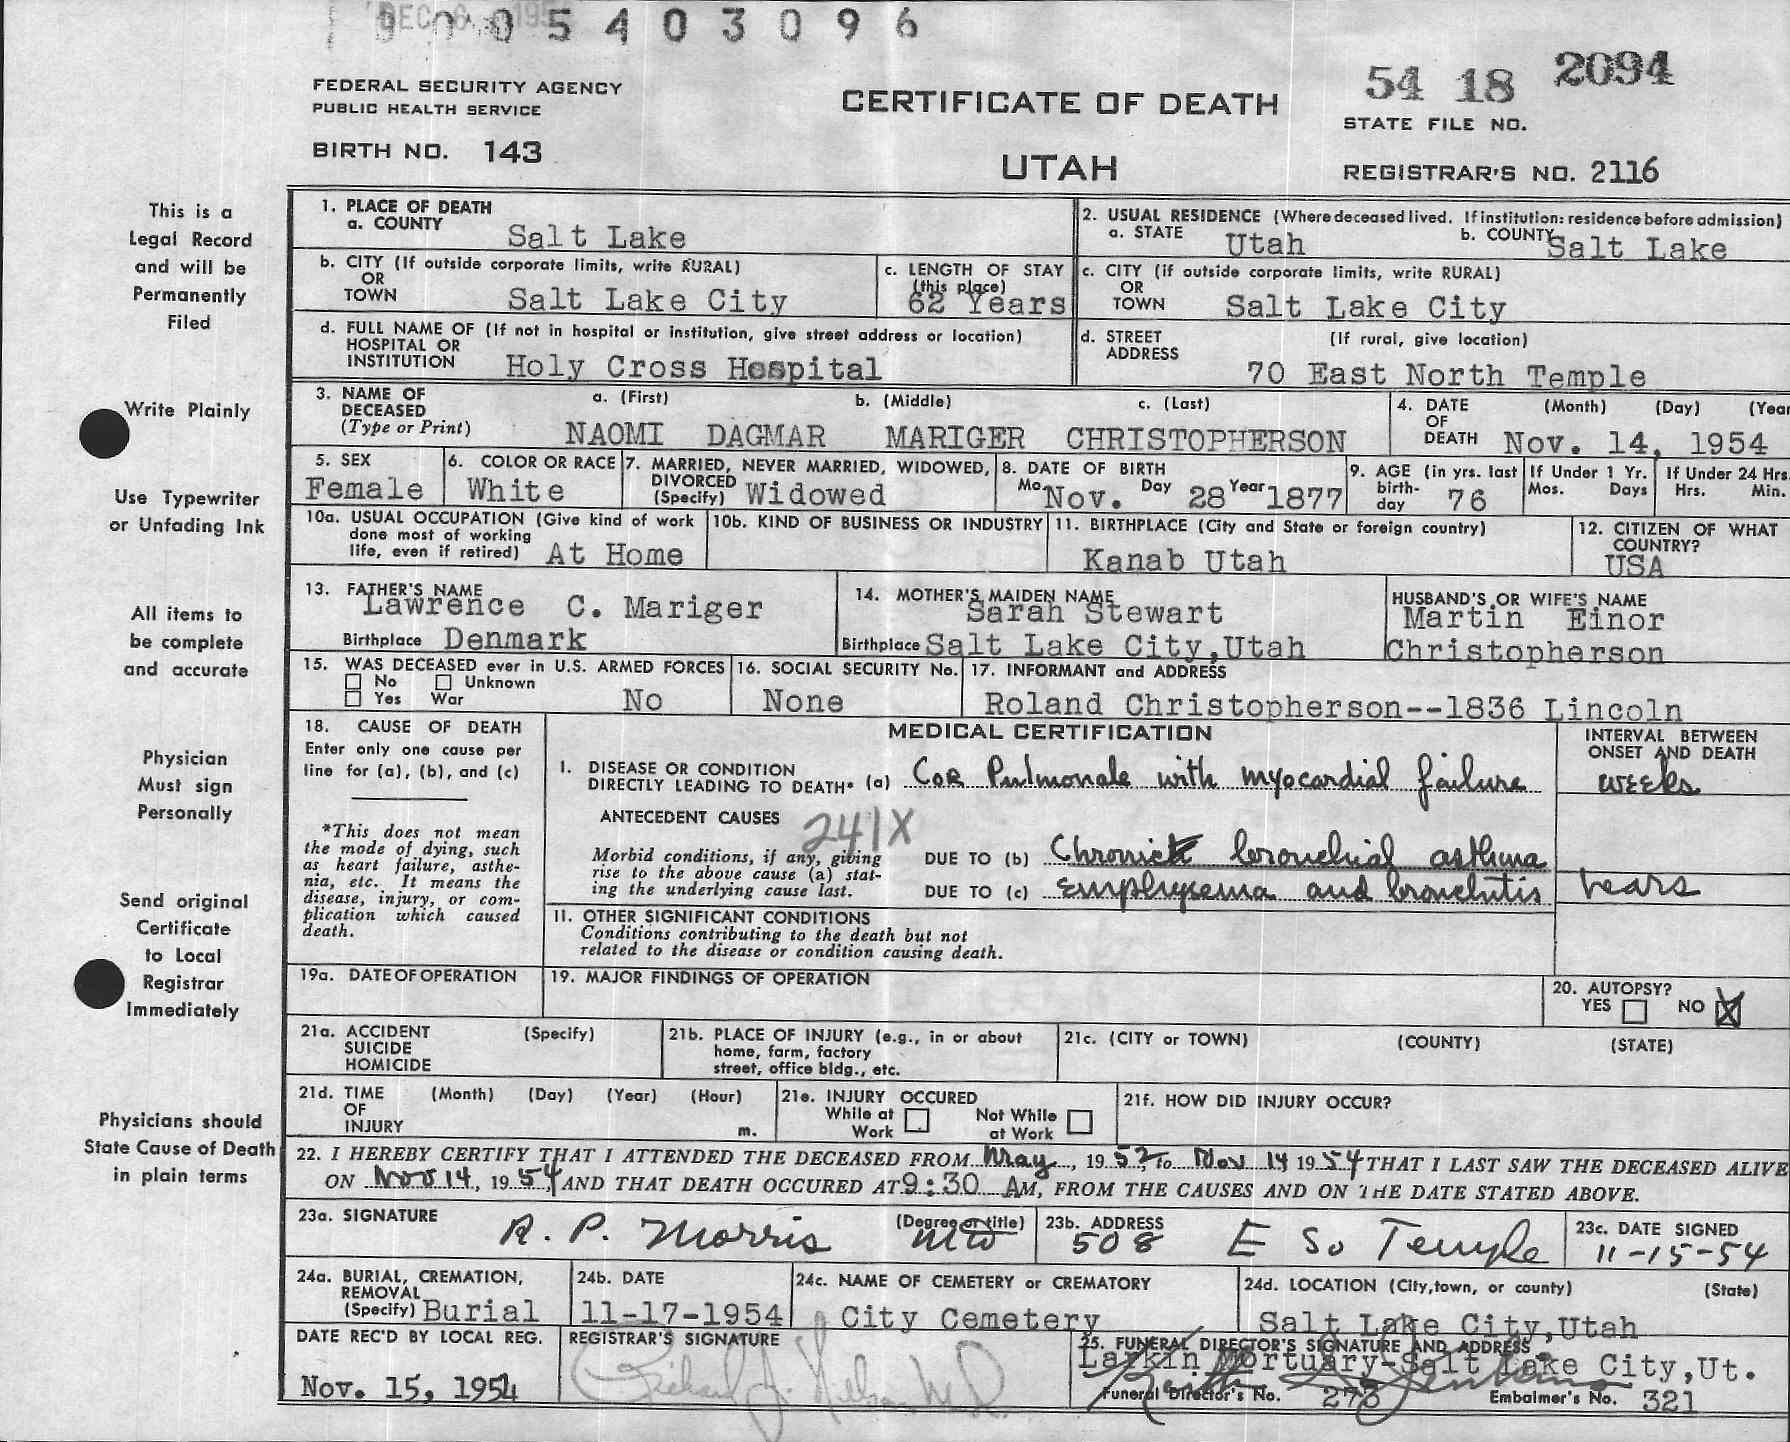 DEC
5 4 0 3 0 9 6
54 18 2094
FEDERAL SECURITY AGENCY
PUBLIC HEALTH SERVICE
CERTIFICATE OF DEATH
STATE FILE NO.
BIRTH NO. 143
UTAH
REGISTRAR'S NO. 2116
This is a
Legal Record
and will be
Permanently
Filed
Write Plainly
Use Typewriter
or Unfading Ink
All items to
be complete
and accurate
Physician
Must sign
Personally
Send original
Certificate
to Local
Registrar
Immediately
Physicians should
State Cause of Death
in plain terms
1. PLACE OF DEATH
a. COUNTY Salt Lake
2. USUAL RESIDENCE (Where deceased lived. If institution: residence before admission)
a. STATE Utah b. COUNTY Salt Lake
b. CITY (If outside corporate limits, write RURAL)
OR
TOWN Salt Lake City
c. LENGTH OF STAY
(this place)
62 Years
c. CITY (if outside corporate limits, write RURAL)
OR
TOWN Salt Lake City
d. FULL NAME OF (If not in hospital or institution, give street address or location)
HOSPITAL OR
INSTITUTION Holy Cross Hospital
d. STREET (If rural, give location)
ADDRESS
70 East North Temple
3. NAME OF a. (First) b. (Middle) c. (Last)
DECEASED
(Type or Print) NAOMI DAGMAR MARIGER CHRISTOPHERSON
4. DATE (Month) (Day) (Year
OF
DEATH Nov. 14, 1954
5. SEX
Female
6. COLOR OR RACE
White
7. MARRIED, NEVER MARRIED, WIDOWED,
DIVORCED
(Specify) Widowed
8. DATE OF BIRTH
Mo. Nov. Day 28 Year 1877
9. AGE (in yrs. last
birth-
day 76
If Under 1 Yr.
Mos. Days
If Under 24 Hrs.
Hrs. Min.
10a. USUAL OCCUPATION (Give kind of work
done most of working
life, even if retired) At Home
10b. KIND OF BUSINESS OR INDUSTRY
11. BIRTHPLACE (City and State or foreign country)
Kanab Utah
12. CITIZEN OF WHAT
COUNTRY?
USA
13. FATHER'S NAME
Lawrence C. Mariger
Birthplace Denmark
14. MOTHER'S MAIDEN NAME
Sarah Stewart
Birthplace Salt Lake City,Utah
HUSBAND'S OR WIFE'S NAME
Martin Einor
Christopherson
15. WAS DECEASED ever in U.S. ARMED FORCES
No Unknown
Yes War No
16. SOCIAL SECURITY No.
None
17. INFORMANT and ADDRESS
Roland Christopherson--1836 Lincoln
18. CAUSE OF DEATH
Enter only one cause per
line for (a), (b), and (c)
*This does not mean
the mode of dying, such
as heart failure, asthe-
nia, etc. It means the
disease, injury, or com-
plication which caused
death.
MEDICAL CERTIFICATION
INTERVAL BETWEEN
ONSET AND DEATH
I. DISEASE OR CONDITION
DIRECTLY LEADING TO DEATH* (a) Cor Pulmonale with myocardial failure weeks
ANTECEDENT CAUSES 241X
Morbid conditions, if any, giving
rise to the above cause (a) stat-
ing the underlying cause last.
DUE TO (b) Chronick bronchial asthma
DUE TO (c) Emphysema and bronchitis Years
II. OTHER SIGNIFICANT CONDITIONS
Conditions contributing to the death but not
related to the disease or condition causing death.
19a. DATE OF OPERATION
19. MAJOR FINDINGS OF OPERATION
20. AUTOPSY?
YES NO X
21a. ACCIDENT (Specify)
SUICIDE
HOMICIDE
21b. PLACE OF INJURY (e.g., in or about
home, farm, factory
street, office bldg., etc.
21c. (CITY or TOWN) (COUNTY) (STATE)
21d. TIME (Month) (Day) (Year) (Hour)
OF
INJURY m.
21e. INJURY OCCURED
While at Not While
Work at Work
21f. HOW DID INJURY OCCUR?
22. I HEREBY CERTIFY THAT I ATTENDED THE DECEASED FROM May, 1952, to Nov 14 1954 THAT I LAST SAW THE DECEASED ALIVE
ON Nov 14, 1954, AND THAT DEATH OCCURED AT 9:30 AM, FROM THE CAUSES AND ON THE DATE STATED ABOVE.
23a. SIGNATURE R. P. Morris (Degree or title) MD
23b. ADDRESS
508 E So Temple
23c. DATE SIGNED
11-15-54
24a. BURIAL, CREMATION,
REMOVAL
(Specify) Burial
24b. DATE
11-17-1954
24c. NAME OF CEMETERY or CREMATORY
City Cemetery
24d. LOCATION (City,town, or county) (State)
Salt Lake City,Utah
DATE REC'D BY LOCAL REG.
Nov. 15, 1954
REGISTRAR'S SIGNATURE
Richard J. Nelson M.D.
25. FUNERAL DIRECTOR'S SIGNATURE AND ADDRESS
Larkin Mortuary-Salt Lake City,Ut.
Funeral Director's No. 273 Embalmer's No. 321